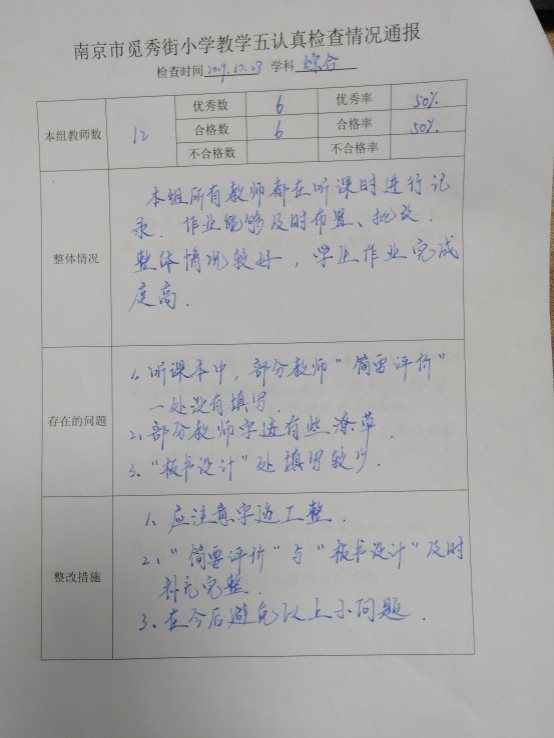 南京市觅秀街小学教学五认真检查情况通报
检查时间 2019.12.23 学科 综合
本组教师数 12 优秀数 6 优秀率 50%
合格数 6 合格率 50%
不合格数 不合格率
整体情况
本组所有教师都在听课时进行记
录.作业能够及时布置、批改.
整体情况较好,学生作业完成
度高.
存在的问题
1、听课本中,部分教师“简要评价”
一处没有填写.
2、部分教师字迹有些潦草.
3、“板书设计”处填写较少.
整改措施
1、应注意字迹工整.
2、“简要评价”与“板书设计”及时
补充完整.
3、在今后避免以上小问题.